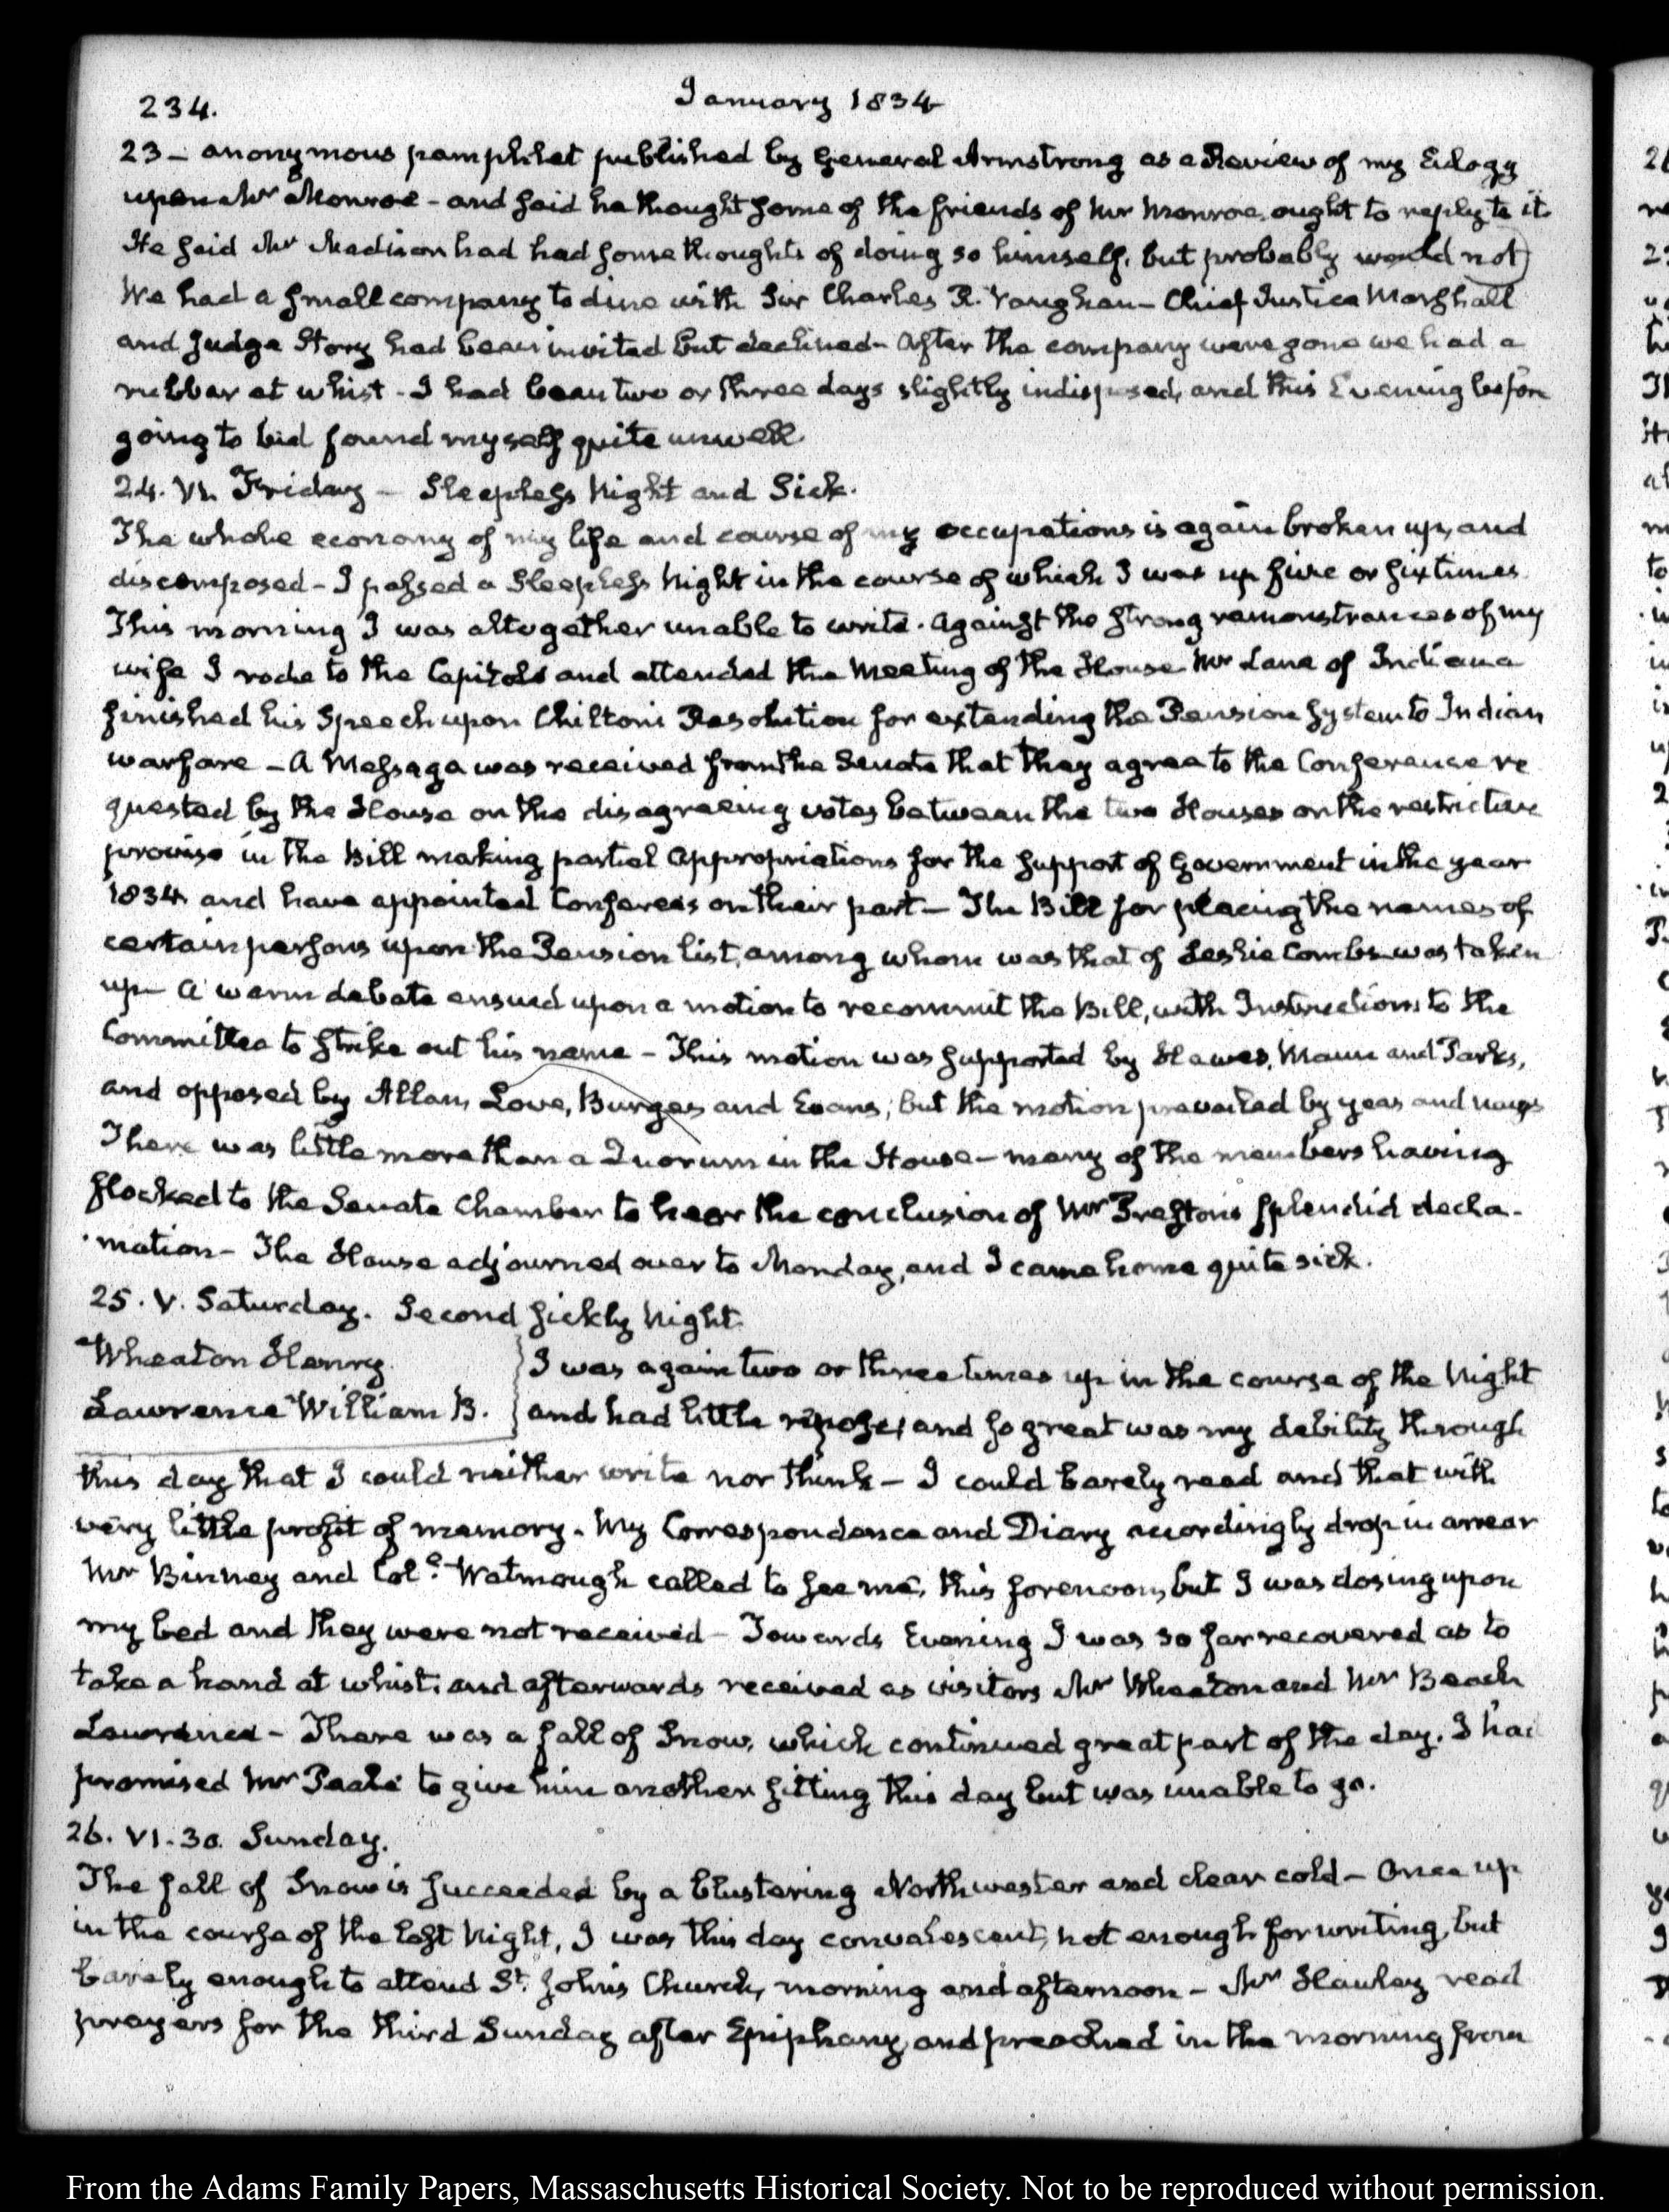 234. January 1834
23 – anonymous pamphlet published by General Armstrong as a Review of my Eulogy
upon Mr Monroe – and said he thought some of the friends of Mr Monroe, ought to reply to it.
He said Mr Madison had had some thoughts of doing so himself, but probably would not
We had a small company to dine with Sir Charles R. Vaughan – Chief Justice Marshall
and Judge Story had been invited but declined – After the company were gone we had a
rubber at whist – I had been two or three days slightly indisposed, and this Evening before
going to bed found myself quite unwell.
24. VI. Friday – Sleepless Night and Sick.
The whole economy of my life and course of my occupations is again broken up, and
discomposed – I passed a sleepless Night in the course of which I was up five or six times
This morning I was altogether unable to write. Against the strong remonstrances of my
wife I rode to the Capitol and attended the Meeting of the House Mr Lane of Indiana
finished his Speech upon Chilton's Resolution for extending the Pension system to Indian
warfare – A Message was received from the Senate that they agree to the Conference re
quested by the House on the disagreeing votes between the two Houses on the restrictive
proviso in the Bill making partial Appropriations for the support of Government in the year
1834 and have appointed Conferees on their part – The Bill for placing the names of
certain persons upon the Pension list, among whom was that of Leslie Combs was taken
up – A warm debate ensued upon a motion to recommit the Bill, with Instructions to the
Committee to strike out his name – This motion was supported by Hawes, Mann and Parks,
and opposed by Allan, Love, Burges and Evans; but the motion prevailed by yeas and nays
There was little more than a Quorum in the House – many of the members having
flocked to the Senate Chamber to hear the conclusion of Mr Preston's splendid decla-
mation – The House adjourned over to Monday, and I came home quite sick.
25. V. Saturday. Second sickly Night.
Wheaton Henry
Lawrence William B.
I was again two or three times up in the course of the Night
and had little repose; and so great was my debility through
this day that I could neither write nor think – I could barely read and that with
very little profit of memory. My Correspondence and Diary accordingly drop in arrear
Mr Binney and Col.o Watmough called to see me, this forenoon, but I was dosing upon
my bed and they were not received – Towards Evening I was so far recovered as to
take a hand at whist, and afterwards received as visitors Mr Wheaton and Mr Beach
Lawrence – There was a fall of Snow, which continued great part of the day. I had
promised Mr Peale to give him another sitting this day but was unable to go.
26. VI.30. Sunday.
The fall of Snow is succeeded by a blustering Northwester and clear cold – Once up
in the course of the last Night, I was this day convalescent, not enough for writing, but
barely enough to attend St. John's Church, morning and afternoon – Mr Hawley read
prayers for the third Sunday after Epiphany, and preached in the morning from
From the Adams Family Papers, Massachusetts Historical Society. Not to be reproduced without permission.